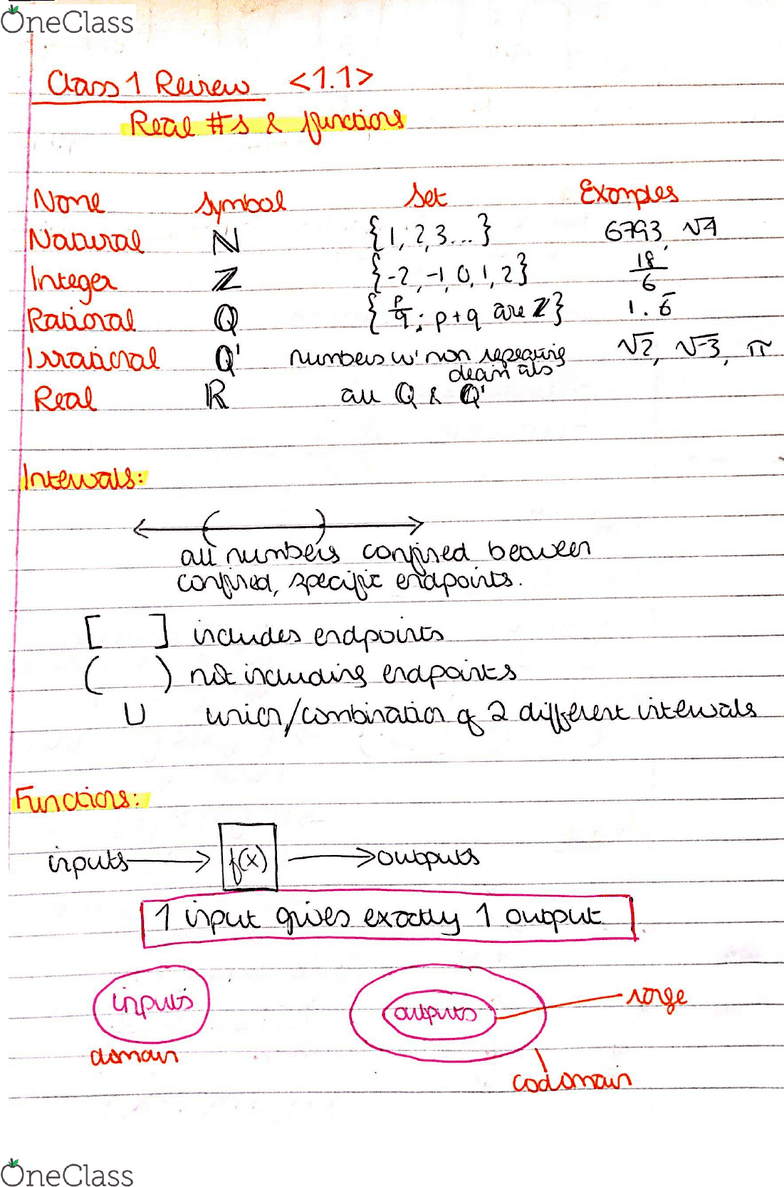 OneClass
Class 1 Review <1.1>
Real #s & functions
Name Symbol Set Examples
Natural ℕ {1, 2, 3...} 6793, √4
Integer ℤ {-2, -1, 0, 1, 2} 18/6
Rational ℚ {p/q ; p + q are ℤ} 1.6
Irrational ℚ' numbers w' non repeating decimals √2, √3, π
Real ℝ all ℚ & ℚ'
Intervals:
all numbers confined between
confined, specific endpoints.
[ ] includes endpoints
( ) not including endpoints
∪ union/combination of 2 different intervals
Functions:
inputs → f(x) → outputs
1 input gives exactly 1 output
inputs outputs range
domain
codomain
OneClass